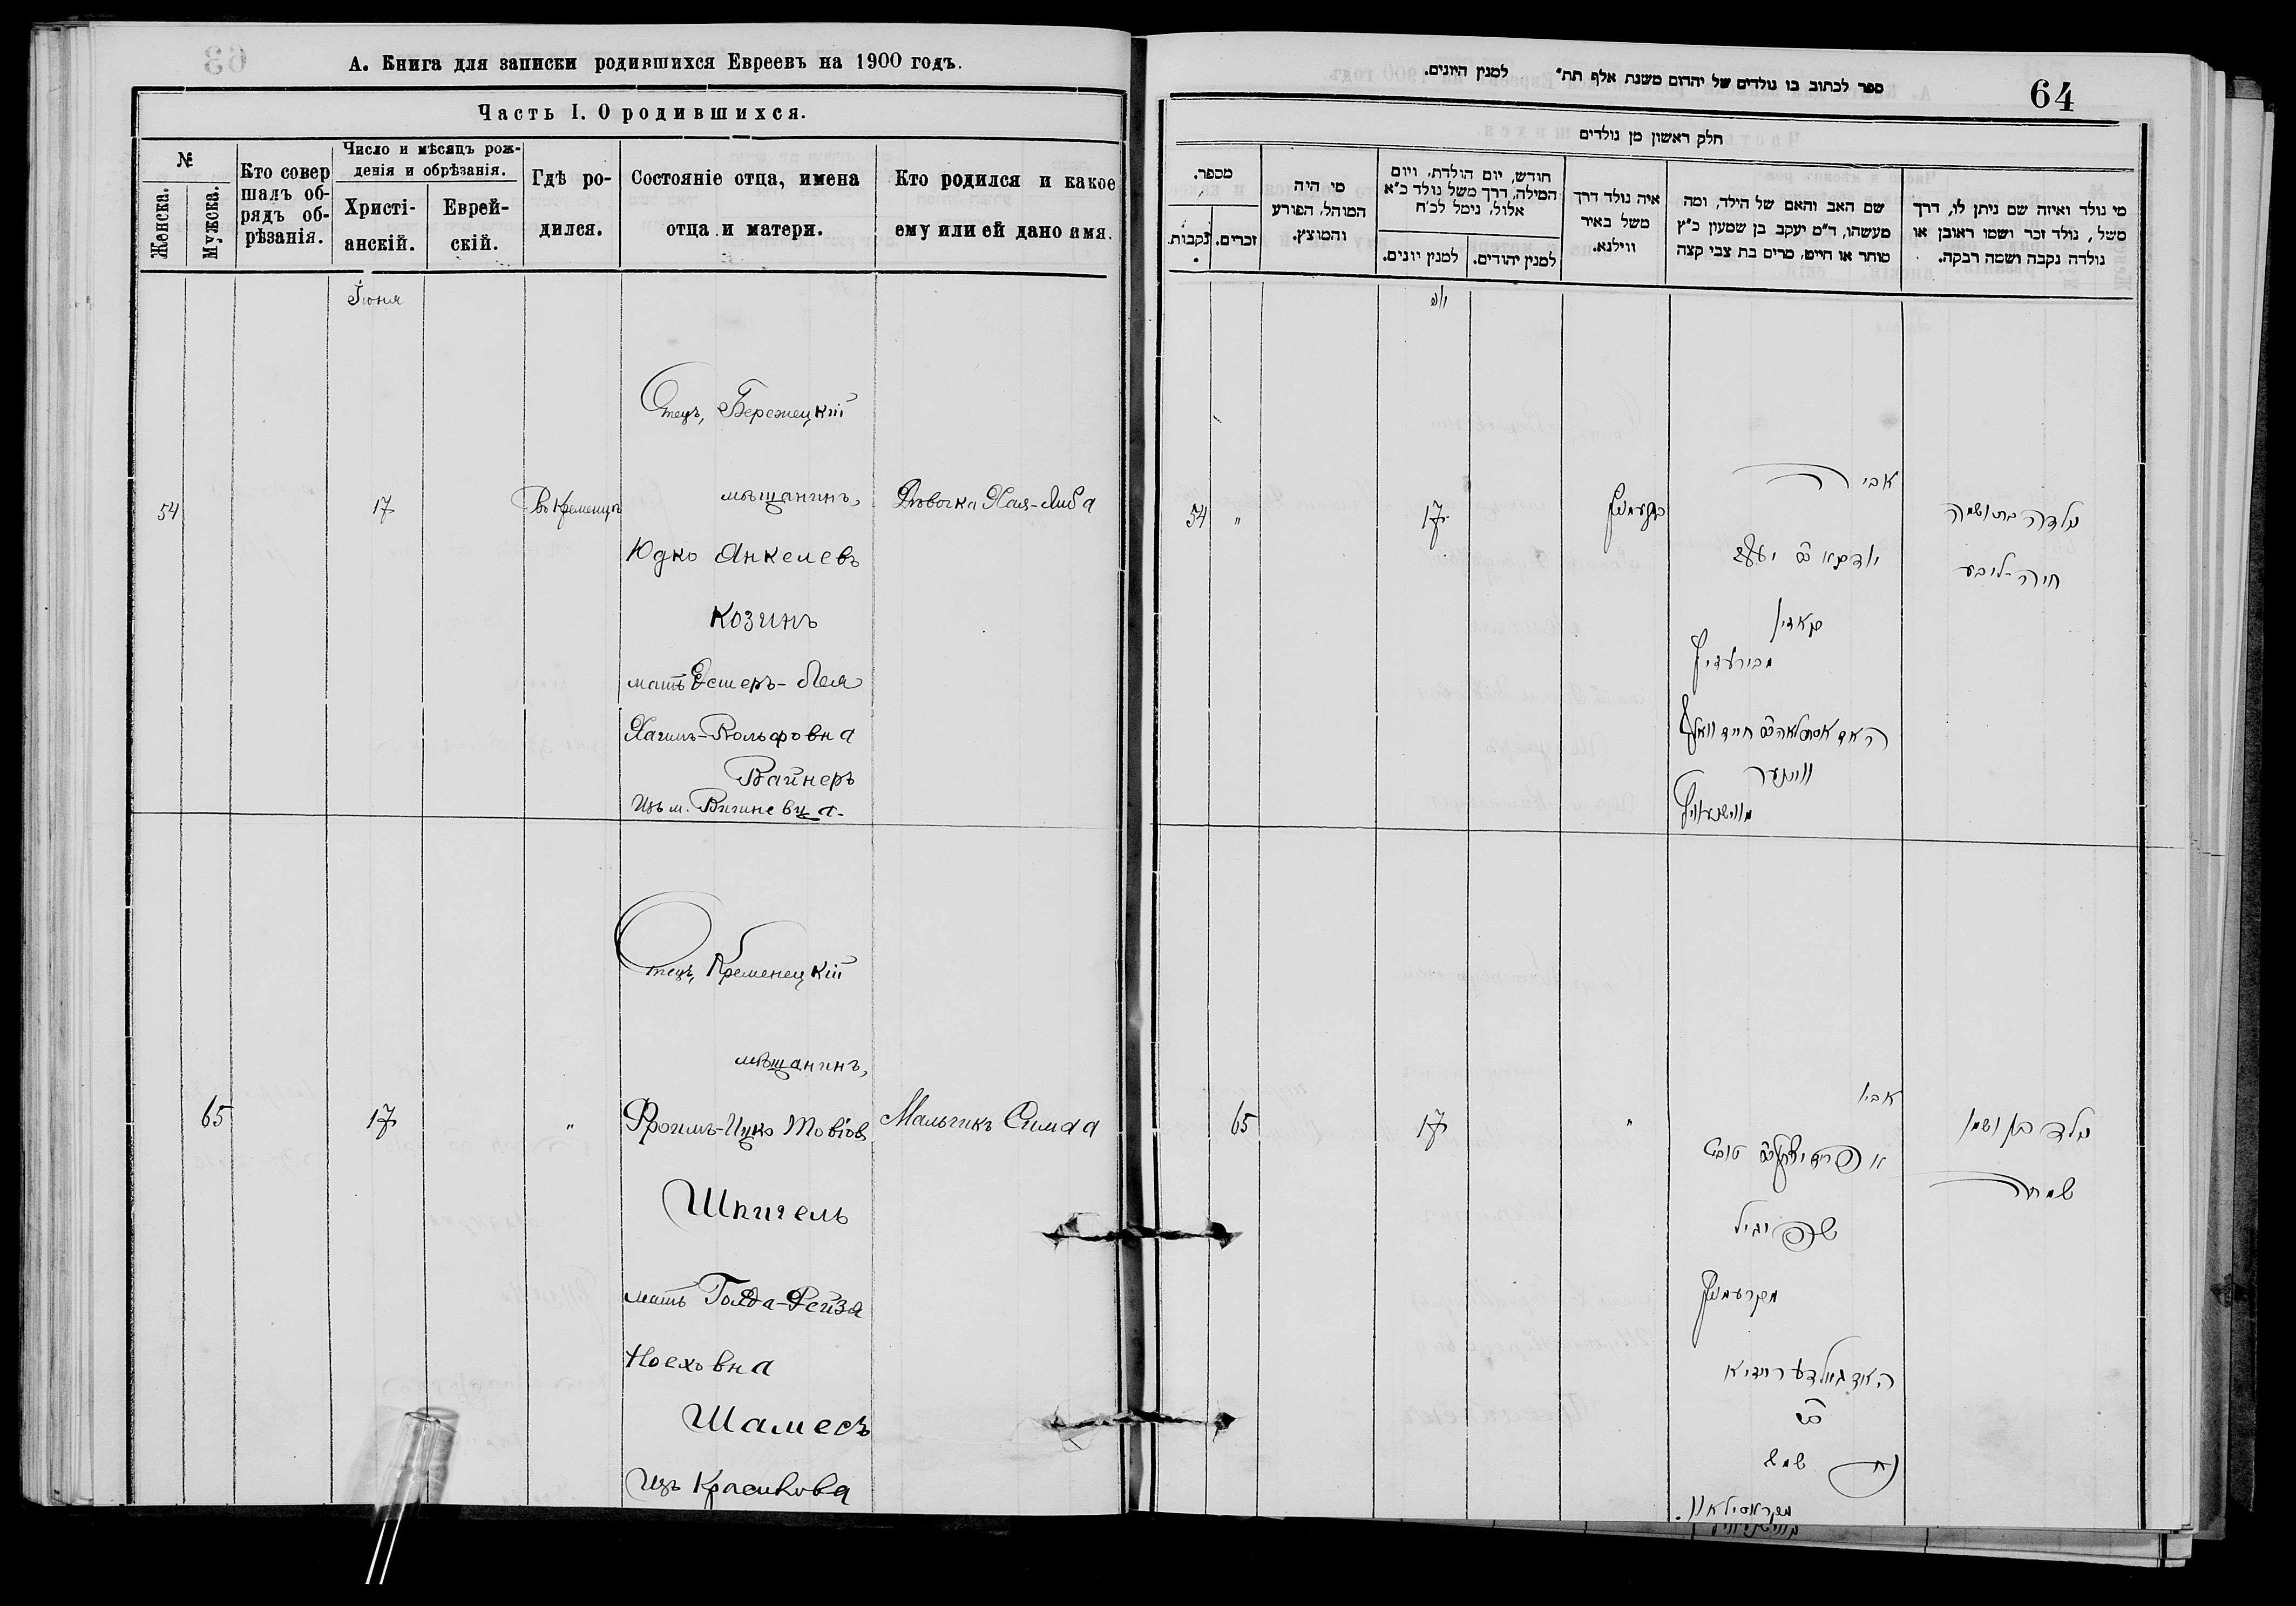 А. Книга для записки родившихся Евреевъ на 1900 годъ.
Часть I. О родившихся.
№
Женска.
Мужска.
Кто совер
шалъ об-
рядъ об-
рѣзанія.
Число и мѣсяцъ рож-
денія и обрѣзанія.
Христі-
анскій.
Еврей-
скій.
Гдѣ ро-
дился.
Состояніе отца, имена
отца и матери.
Кто родился и какое
ему или ей дано имя.
Іюня
54
17
Въ Кременцѣ
Отецъ, Бережецкій
мѣщанинъ,
Юдко Янкелевъ
Козинъ
мать Эстеръ-Лея
Хаимъ-Вольфовна
Вайнеръ
Изъ м. Вишневца.
Дѣвочка Хая-Либа
65
17
"
Отецъ, Кременецкій
мѣщанинъ,
Фроимъ-Ицко Товіовъ
Шпигель
мать Голда-Рейза
Ноеховна
Шамесъ
Изъ Красилова
Мальчикъ Симха
ספר לכתוב בו נולדים של יהדום משנת אלף תת״ למנין היונים.
64
חלק ראשון מן נולדים
מספר.
נקבות.
זכרים.
מי היה
המוהל, הפורע
והמוצץ.
חודש, יום הולדת, ויום
המילה, דרך משל נולד כ״א
אלול, נימל לכ״ח
למנין יונים.
למנין יהודים.
איה נולד דרך
משל באיר
ווילנא.
שם האב והאם של הילד, ומה
מעשהו, ד״מ יעקב בן שמעון כ״ץ
סוחר או חייט, מרים בת צבי קצה
מי נולד ואיזה שם ניתן לו, דרך
משל, נולד זכר ושמו ראובן או
נולדה נקבה ושמה רבקה.
54
"
17
אבי ה
יודקא ב יענקל
קאזין
חיים וואלף
וויינער
נולדה בת ושמה
חיה-ליבע
65
17
"
אביו
טובי
שפיגיל
מקרעמניץ
האם גאלדע רייזא
ב
נח שמש
מקראסילאוו.
נולד בן ושמו
שמחה